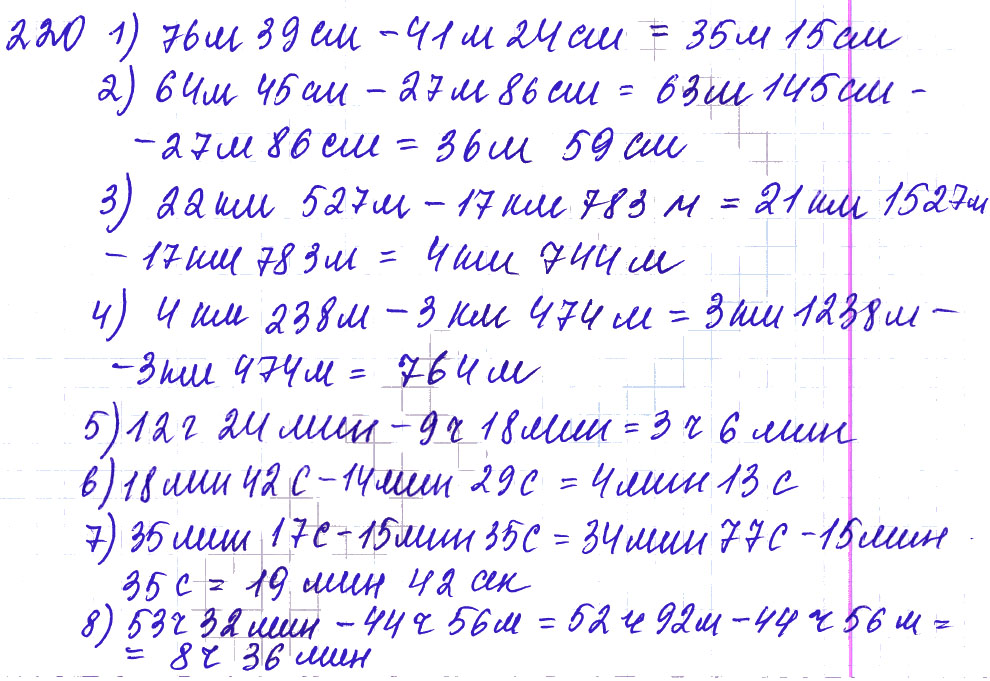 220 1) 76м 39см - 41м 24см = 35м 15см
2) 64м 45см - 27м 86см = 63м 145см -
- 27м 86см = 36м 59см
3) 22км 527м - 17км 783м = 21км 1527м
- 17км 783м = 4км 744м
4) 4км 238м - 3км 474м = 3км 1238м -
- 3км 474м = 764м
5) 12г 24мин - 9ч 18мин = 3ч 6мин
6) 18мин 42с - 14мин 29с = 4мин 13с
7) 35мин 17с - 15мин 35с = 34мин 77с - 15мин
35с = 19мин 42сек
8) 53ч 32мин - 44ч 56м = 52ч 92м - 44ч 56м =
= 8ч 36мин